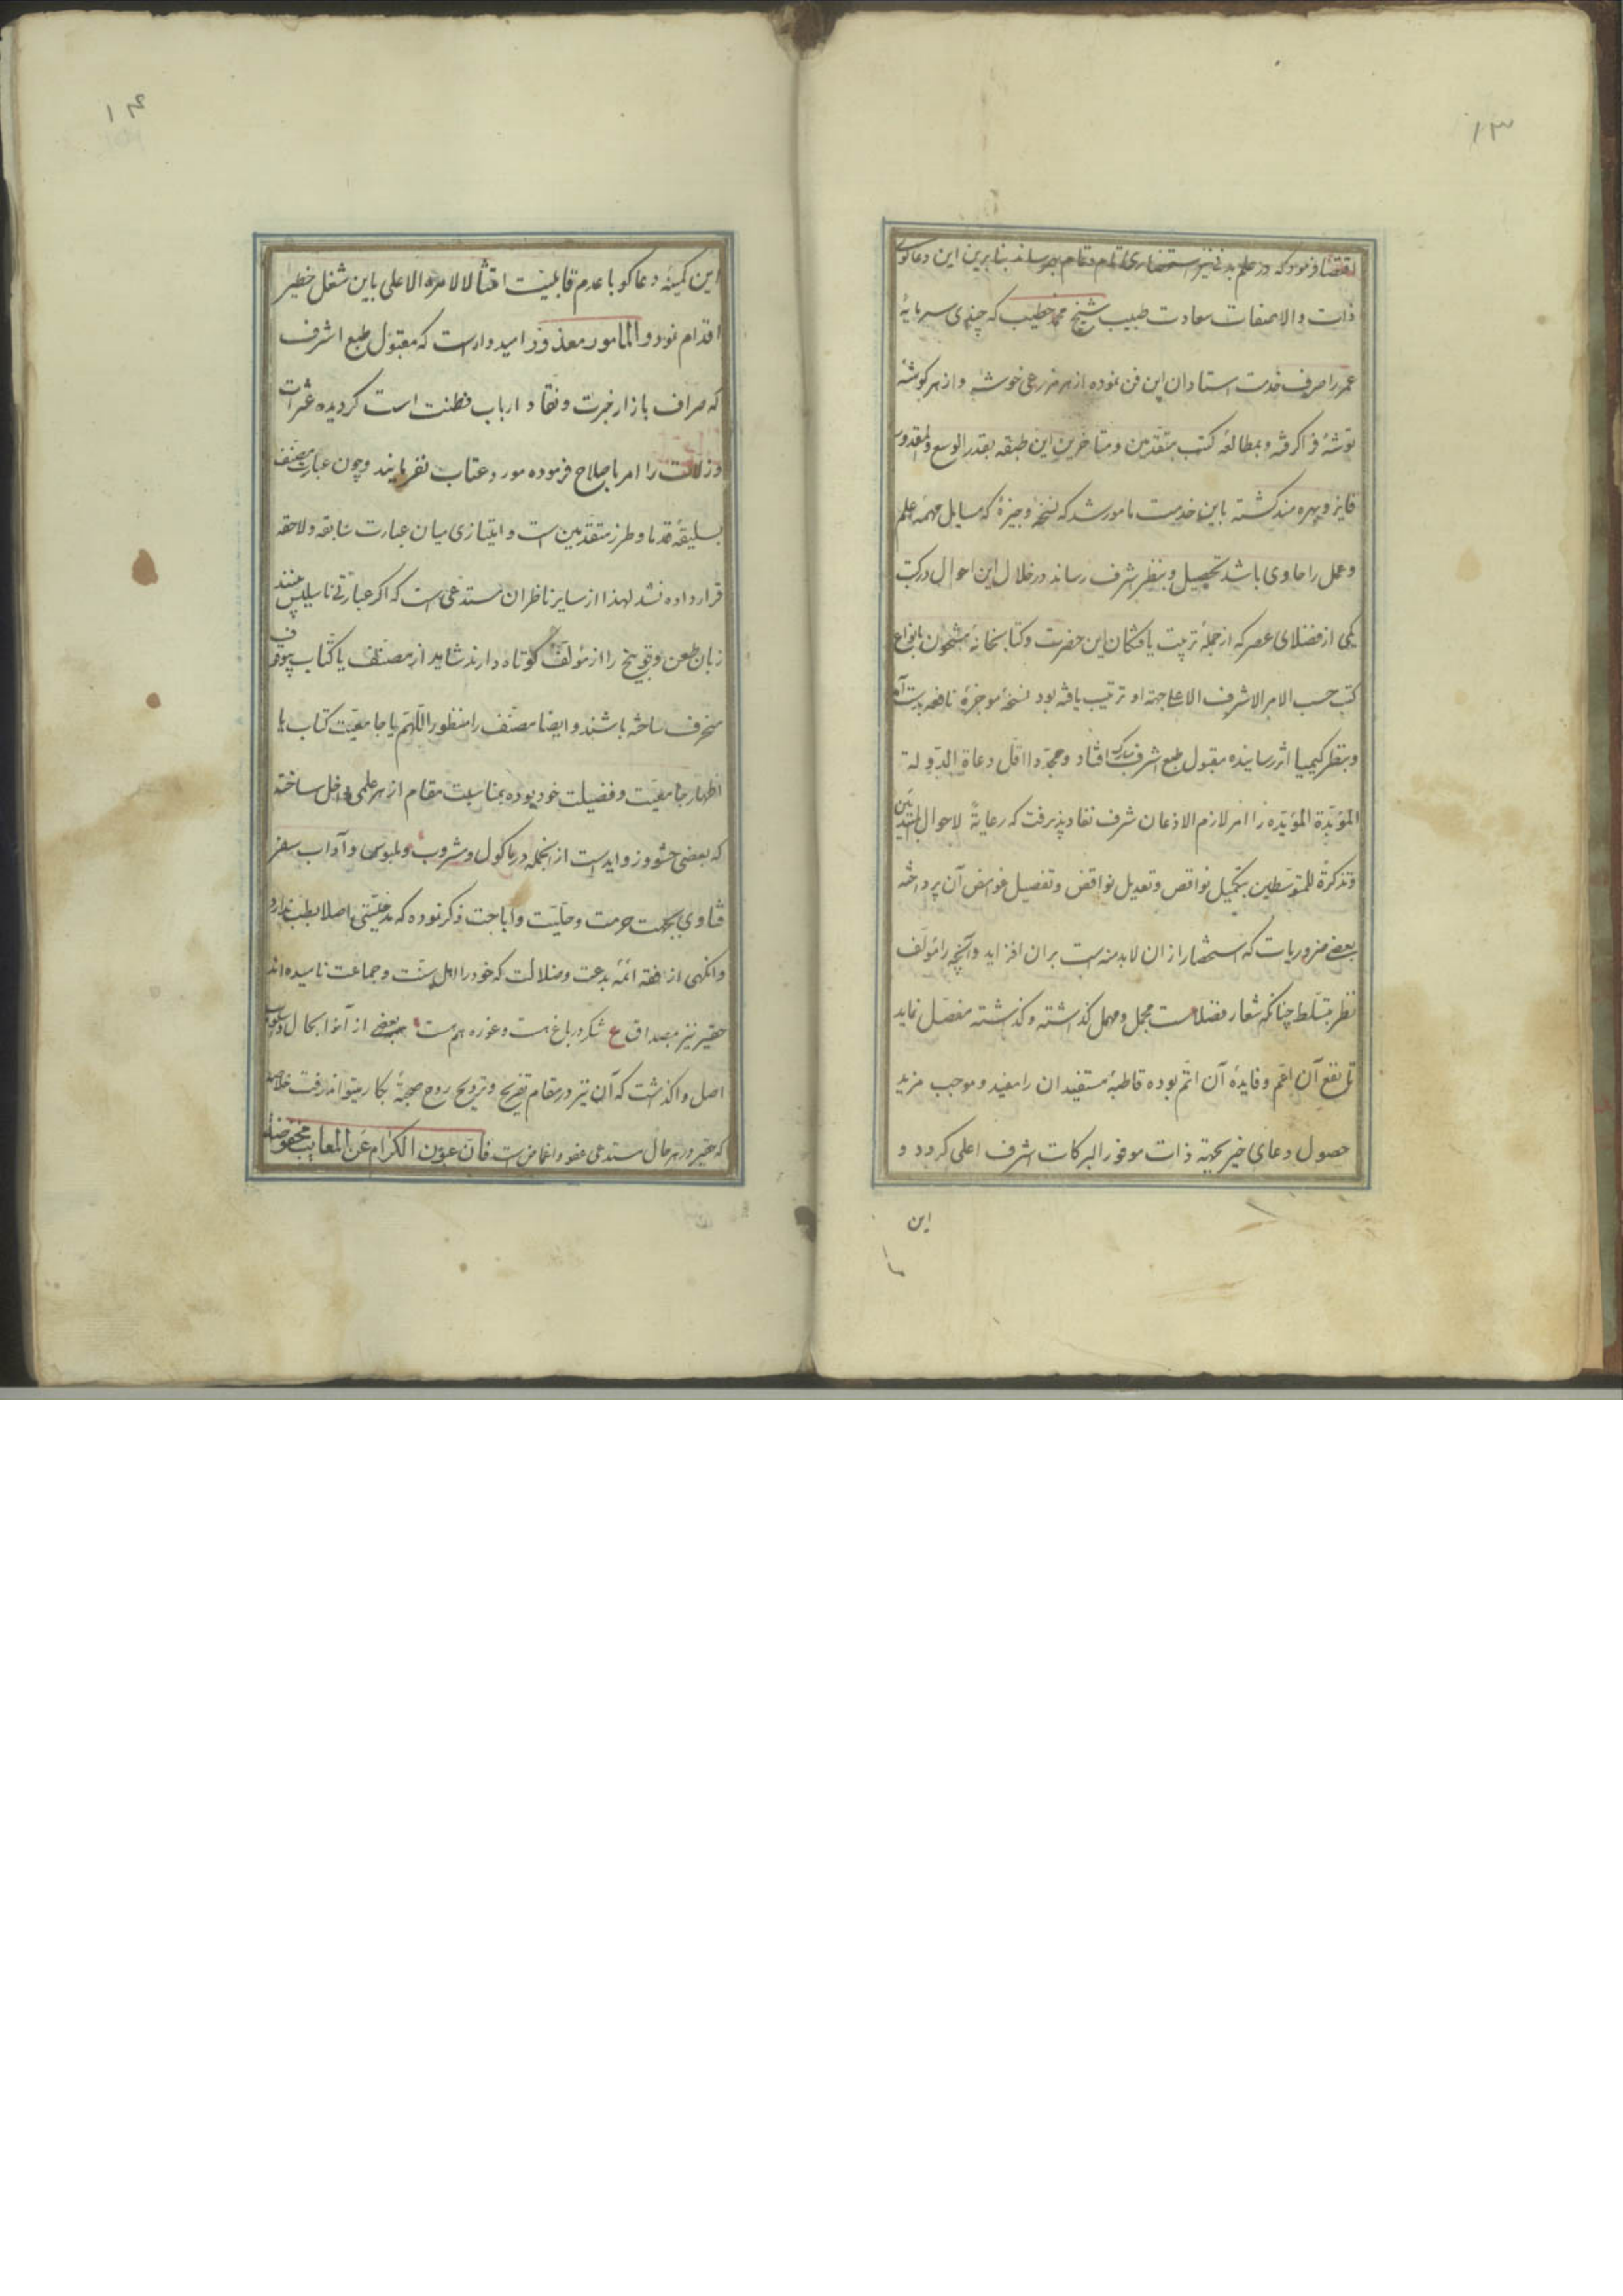 ۱۳
اقتضا فرمود که در علم بدنی نیز استحضاری تمام و تمام بهم رساند بنابرین این دعاگوی
ذات والاصفات سعادت طبیب شیخ محمد خطیب که چندی سرمایهٔ
عمر را صرف خدمت استادان این فن نموده از هر مزرعی خوشهٔ و از هر کوشهٔ
توشهٔ فرا گرفته و بمطالعهٔ کتب متقدمین و متاخرین این طبقه بقدر الوسع والمقدور
فایز و بهره مند کشته باین خدمت مامور شد که نسخهٔ وجیزهٔ که مسایل مهمهٔ علم
و عمل را حاوی باشد تحصیل و بنظر شرف رساند در خلال این احوال در کتب
یکی از فضلای عصر که از جملهٔ تربیت یافتکان این حضرت و کتابخانهٔ مشحون بانواع
کتب حسب الامر الاشرف الاعلی جهة او ترتیب یافته بود نسخهٔ موجزهٔ نافعه بدست آمد
و بنظر کیمیا اثر رسانیده مقبول طبع اشرف مبارک افتاد و مجددا اقل دعاة الدولة
المؤبدة المؤیده را امر لازم الاذعان شرف نفاد پذیرفت که رعایةً لاحوال المبتدئین
و تذکرة للمتوسطین بتکمیل نواقص و تعدیل نواقض و تفصیل غوامض آن پرداخته
بعضی ضروریات که استحضار از ان لابد منه است بران افزاید و آنچه را مؤلف
نظر بتسلط چنانکه شعار فضلاست مجمل و مهمل گذاشته و گذشته مفصل نماید
تا نفع آن اعم و فایدهٔ آن اتم بوده قاطبهٔ مستفیدان را مفید و موجب مزید
حصول دعای خیر بجهة ذات موفور البرکات اشرف اعلی کردد و
این
۱۴
این کمینه دعاکو با عدم قابلیت امتثالا لامره الاعلی باین شغل خطیر
اقدام نمود و المامور معذور امیدوارست که مقبول طبع اشرف
که صراف بازار خبرت و نقاد ارباب فطنت است کردیده عثرات
و زلات را امر باصلاح فرموده مورد عتاب نفرمایند و چون عبارت مصنف
بسلیقهٔ قدما و طرز متقدمین است و امتیازی میان عبارت سابقه و لاحقه
قرار داده نشد لهذا از سایر ناظران مستدعی است که اکر عبارتی ناسلیس بینند
زبان طعن و توبیخ را از مؤلف کوتاه دارند شاید از مصنف یا کتاب بی وقوف
منحرف ساخته باشند و ایضا مصنف را منظور اللهم یا جامعیت کتاب یا
اظهار جامعیت و فضیلت خود بوده بمناسبت مقام از هر علمی داخل ساخته
که بعضی حشو و زوایدست از انجمله در ماکول و مشروب و ملبوس و آداب سفر
فتاوی بجهت حرمت و حلیت و اباحت ذکر نموده که مدخلیتی اصلا بطب ندارد
و انکهی از فقه ائمهٔ بدعت و ضلالت که خود را اهل سنت و جماعت نامیده اند
حقیر نیز بمصداق ع شکر در باغ هست و غوره هم هست بعضی از آنرا بحال و اسلوب
اصل واکذاشت که آن نیز در مقام تفریح و ترویح روح صحبة بکار میتواند رفت خلاصه
که حقیر در هر حال مستدعی عفو و اغماض است فان عیون الکرام عن المعایب مغضوضة